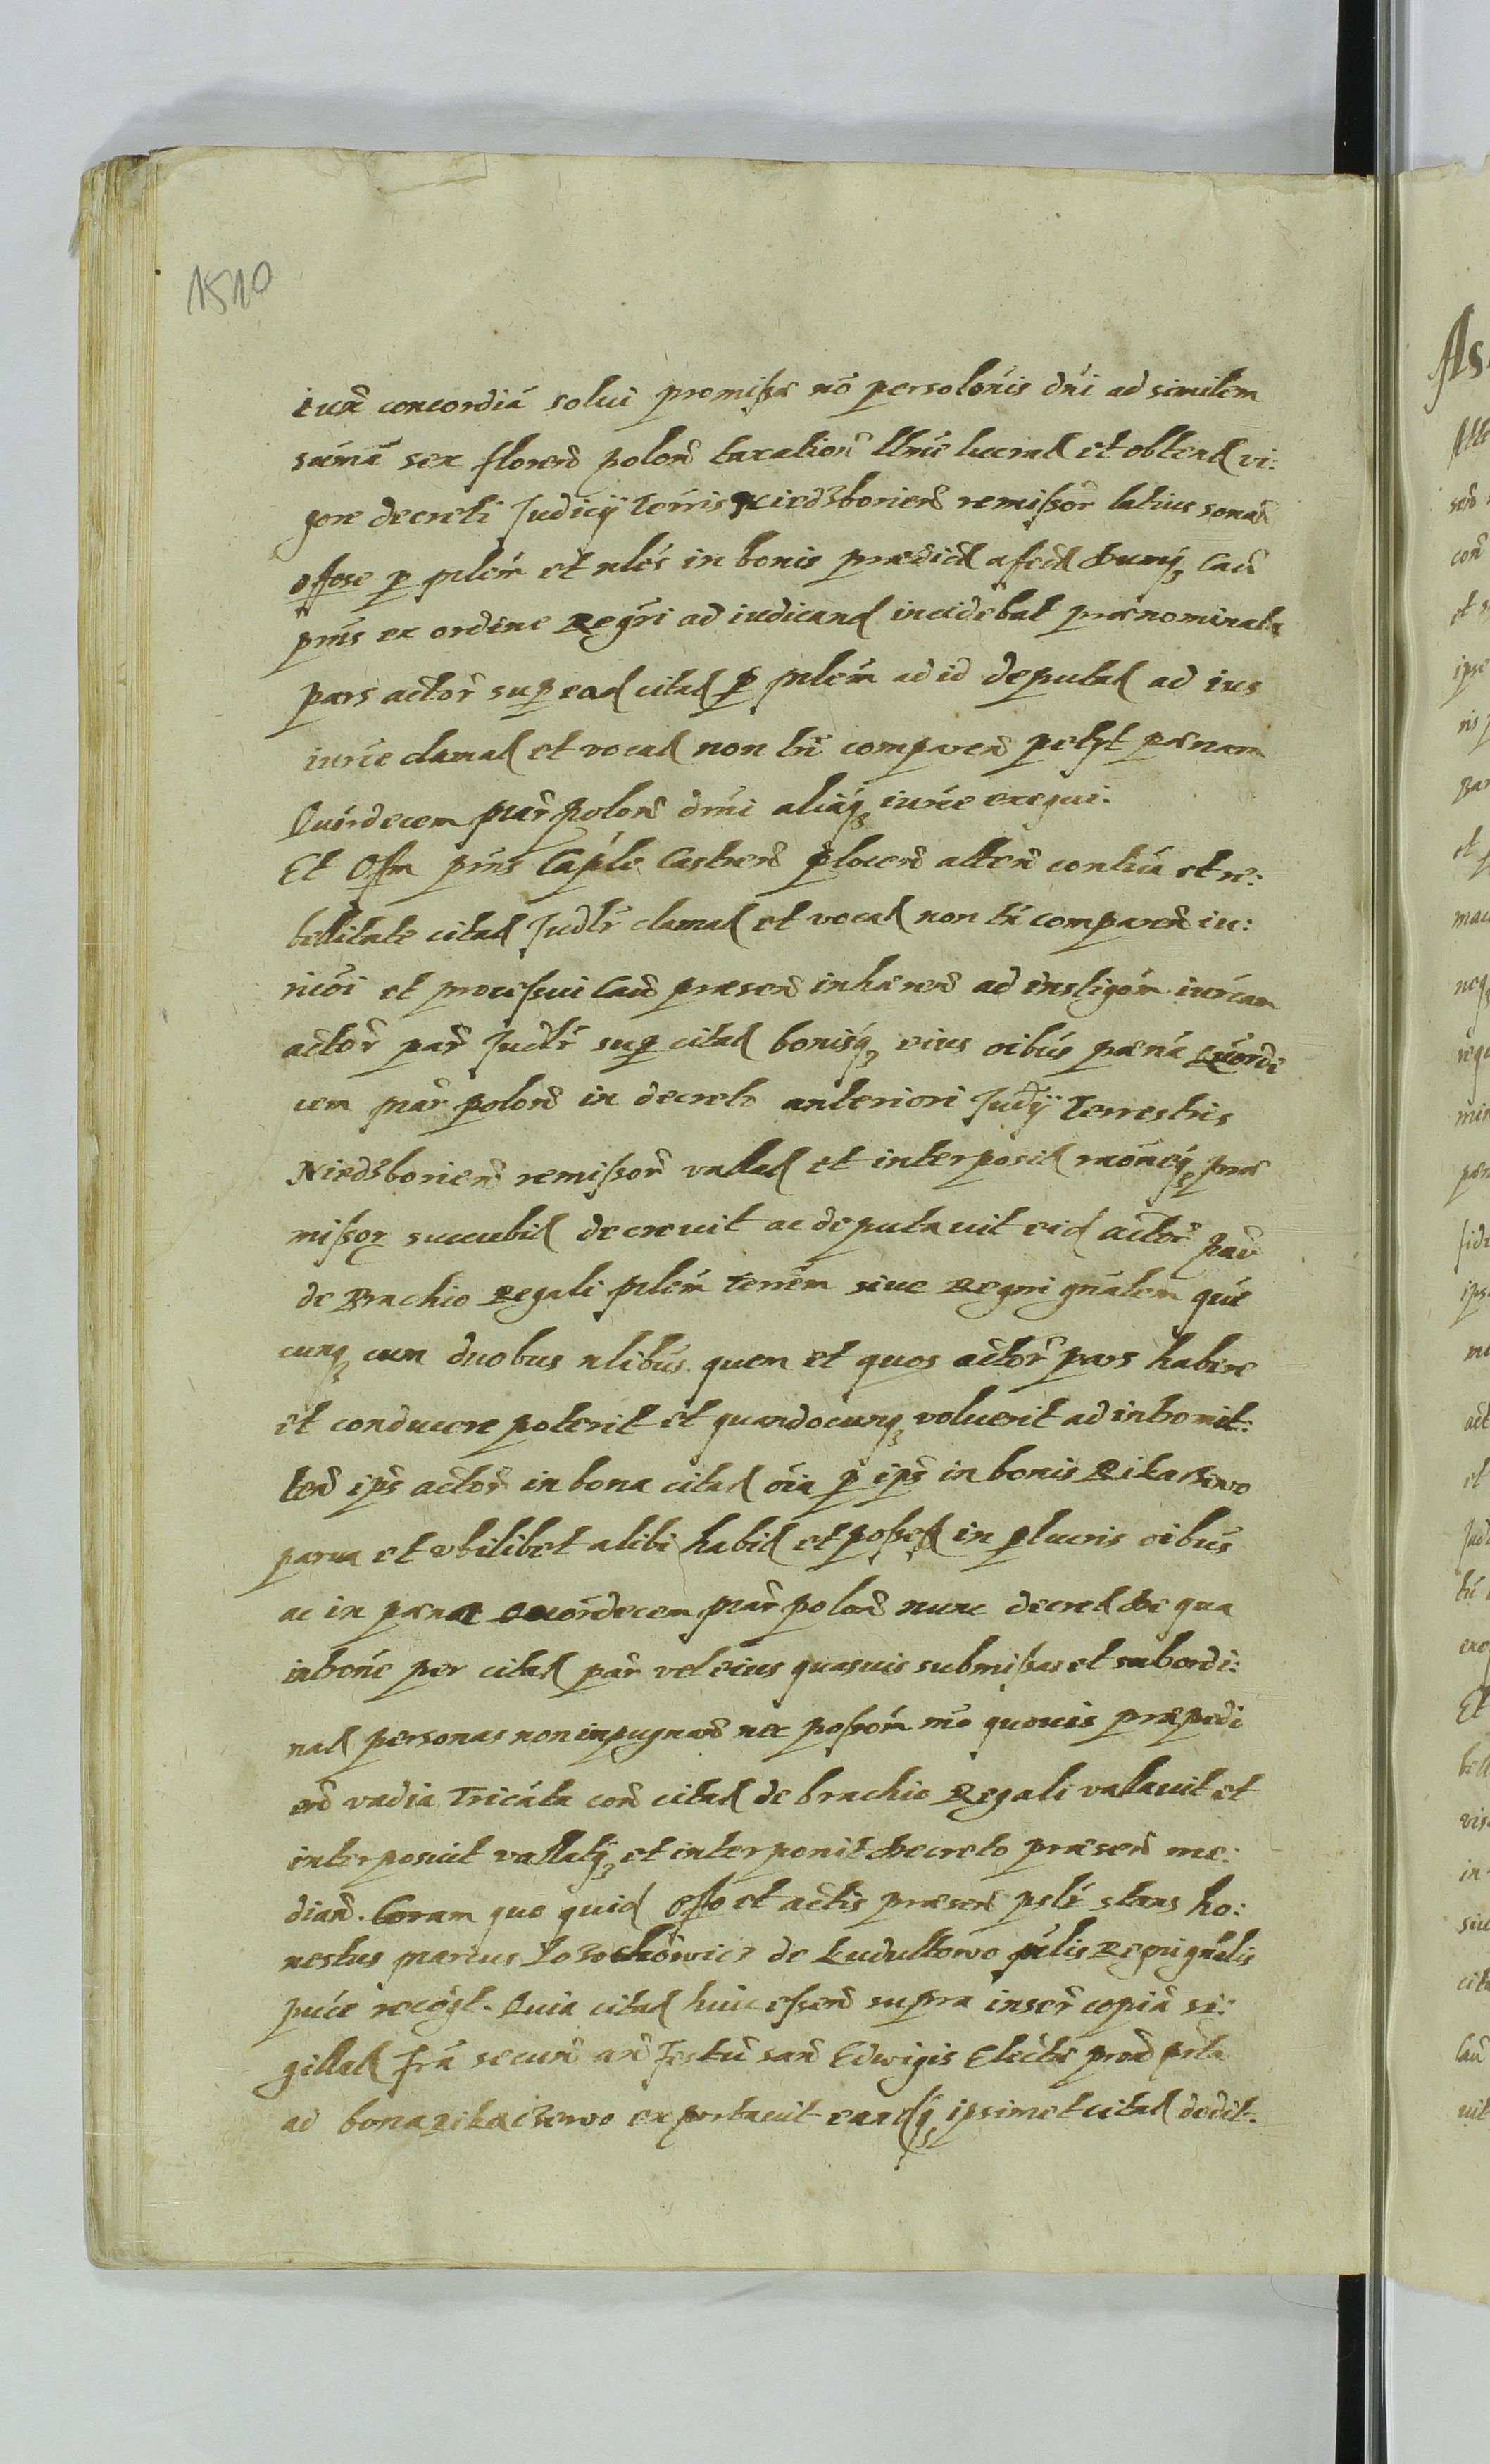 1510
iuxta concordiã solui promissa nõ persolonis dni ad similem
sumã sex floren polon taxation llme lucrat et obtent vi:
gore decreti Judicÿ Terris Niedzborien remissor latius sonan
offose p mlem et nles in bonis prædict afect Dumq Cau
pnis ex ordine Regri ad iudicand incidebat prænominata
pars actor sup ead citat p mlem ad id deputat ad ius
iurie clamat et vocat non tn comparen petyt pænam
Quordecem mar polon dmi aliaq iurie exequi.
Et Offm pns Caple Castren plocen atten contũa et re:
bellitate citat Judlr clamat et vocat non tn comparen iu:
rieoi et processui Cau præsen inhæren ad instigom iuriam
actor par Judlr sup citat bonisq eius oibus pæna Quorde
cem mar polon in decreto anteriori Judÿ Terrestris
Niedzborien remissor vallat et interposit raoneq præ
missor succubit decrevit ac deputavit eid actor par
de Brachio Regali mlem Terrem siue Regni gnalem que
cunq cum duobus nlibus quem et quos actor pars habere
et conducere poterit et quandocunq voluerit ad intromit:
ten ips actor in bona citat oia p ips in bonis Rikaczewo
parua et vbilibet alibi habit et possess in p lucris oibus
ac in pæna Quordecem mar polon nunc decret De qua
intronne per citat par vel eius quasuis submissas et subordi:
nat personas non inpugnan nec possom mo quouis præpedi
en vadia Tricata con citat de brachio Regali vallavit et
interposuit vallatq et interponit Decreto præsen me:
dian. Coram quo quid Offo et actis præsen pslr stans ho:
nestus Marcus de Ludultowo mlis Regni gnalis
puce recogt. Quia citat huic essen supra inser copiã si:
gillat fra secun an Festu San Edwigis Electæ pron prta
ad bona Rikaczewo exportauit eandq ipsimet citat dedit.